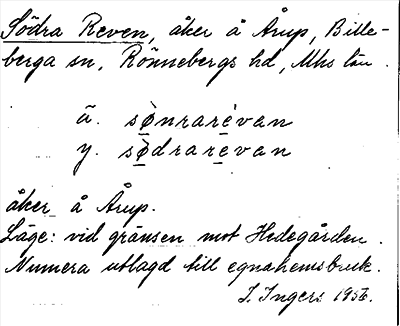 Södra Reven, åker å Årup, Bille-
berga sn, Rönnebergs hd, Mhs län.
ä. sø̀nrarévan
y. sø̀drarevan
åker å Årup.
Läge: vid gränsen mot Hedegården.
Numera utlagd till egnahemsbruk.
I. Ingers 1956.